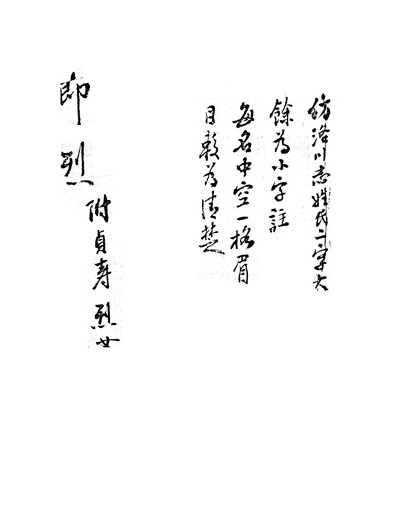 仿漳川志姓氏二字大
餘為小字註
每名中空一格眉
目較為清楚
節烈
附貞壽烈女